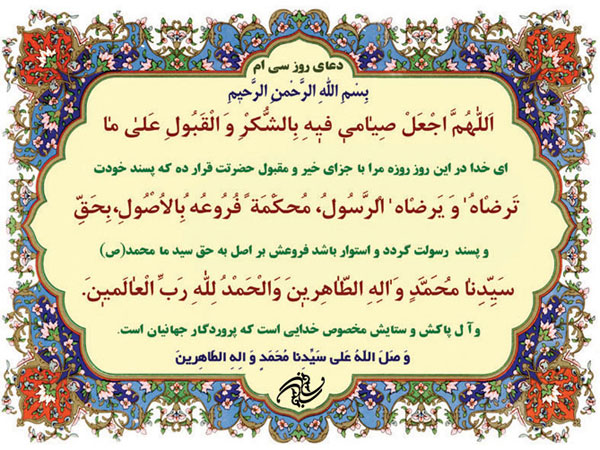 دعای روز سی ام
بِسْمِ اللهِ الرَّحْمنِ الرَّحیمِ
اَللّهُمَّ اجْعَلْ صِیامی فیهِ بِالشُّکْرِ وَ الْقَبُولِ عَلىٰ ما
ای خدا در این روز روزه مرا با جزای خیر و مقبول حضرتت قرار ده که پسند خودت
تَرضاهُ وَ یَرضاه الرَّسُولُ، مُحکْمَةً فُروعُه بُالاُصُولِ،بِحَقِّ
و پسند رسولت گردد و استوار باشد فروعش بر اصل به حق سید ما محمد(ص)
سَیِّدِنا مُحَمَّدٍ وَ الِهِ الطّاهِرینَ وَالْحَمْدُ لِلّهِ رَبِّ الْعالَمینَ.
و آل پاکش و ستایش مخصوص خدایی است که پروردگار جهانیان است.
وَ صَلَ اللهُ عَلی سَیِّدِنا مُحَمَدٍ وَ الِهِ الطّاهِرینَ